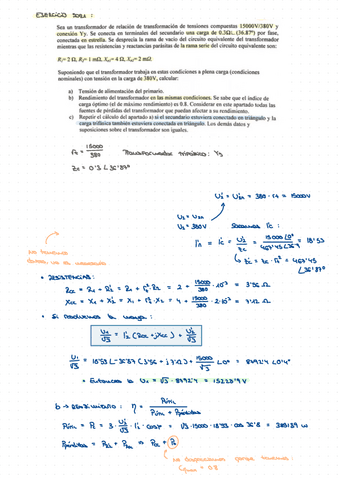 EJERCICIO 2021 :
Sea un transformador de relación de transformación de tensiones compuestas 15000V/380V y
conexión Yy. Se conecta en terminales del secundario una carga de 0.3Ω∟(36.87º) por fase,
conectada en estrella. Se desprecia la rama de vacío del circuito equivalente del transformador
mientras que las resistencias y reactancias parásitas de la rama serie del circuito equivalente son:
R₁= 2 Ω, R₂= 1 mΩ, Xd1= 4 Ω, Xd2= 2 mΩ.
Suponiendo que el transformador trabaja en estas condiciones a plena carga (condiciones
terminales) con tensión en la carga de 380V, calcular:
a) Tensión de alimentación del primario.
b) Rendimiento del transformador en las mismas condiciones. Se sabe que el índice de
carga óptimo (el de máximo rendimiento) es 0.8. Considerar en este apartado todas las
fuentes de pérdidas del transformador que puedan afectar a su rendimiento.
c) Repetir el cálculo del apartado a) si el secundario estuviera conectado en triángulo y la
carga trifásica también estuviera conectada en triángulo. Los demás datos y
suposiciones sobre el transformador son iguales.
rt = 15000/380 TRANSFORMADOR TRIFÁSICO: Yy
Zc = 0'3 ∟36'87º
U₂' = U₂n = 380 · rt = 15000V
U₂ = U₂n
U₂ = 380V
I₂' = U₂'/Zc' = 15000∟0º = 18'53
Zc' = Zc · rt² = 467'45 ∟36'87º
• RESISTENCIAS:
Rcc = R₁ + R₂' = R₁ + rt² · R₂ = 2 + 15000/380 · 10⁻³ = 3'56 Ω
Xcc = X₁ + X₂' = X₁ + rt² · X₂ = 4 + 15000/380 · 2·10⁻³ = 7'12 Ω
• Si resolvemos la malla:
U₁/√3 = I₂' (Rcc + jXcc) + U₂'/√3
U₁/√3 = 18'53 ∟-36'87 (3'56 + j 7'12) + 15000/√3 ∟0º = 8792'4 ∟0'4º
• Entonces la U₁ = √3 · 8792'4 = 15228'9 V
b → RENDIMIENTO: η = Pútil / Pútil + Ppérdidas
Pútil = P₂ = 3 · U₂'/√3 · I₂' · cosφ = √3 · 15000 · 18'53 · cos 36'8 = 385139 W